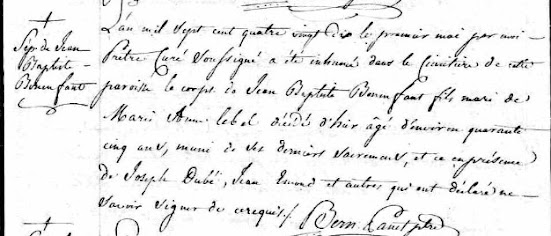 Sep. de Jean
Baptiste
Bonenfant
L'an mil sept cent quatre vingt dix le premier mai par moi
Prêtre Curé Soussigné a été inhumé dans le Cimetière de cette
paroisse le corps de Jean Baptiste Bonenfant fils mari de
Marie Anne lebel décédé d'hier âgé d'environ quarante
cinq ans, muni de ses derniers sacrements, et ce en présence
de Joseph Dubé, Jean Emond et autres qui ont déclaré ne
savoir signer de ce requis /.
Bern. Panet ptre